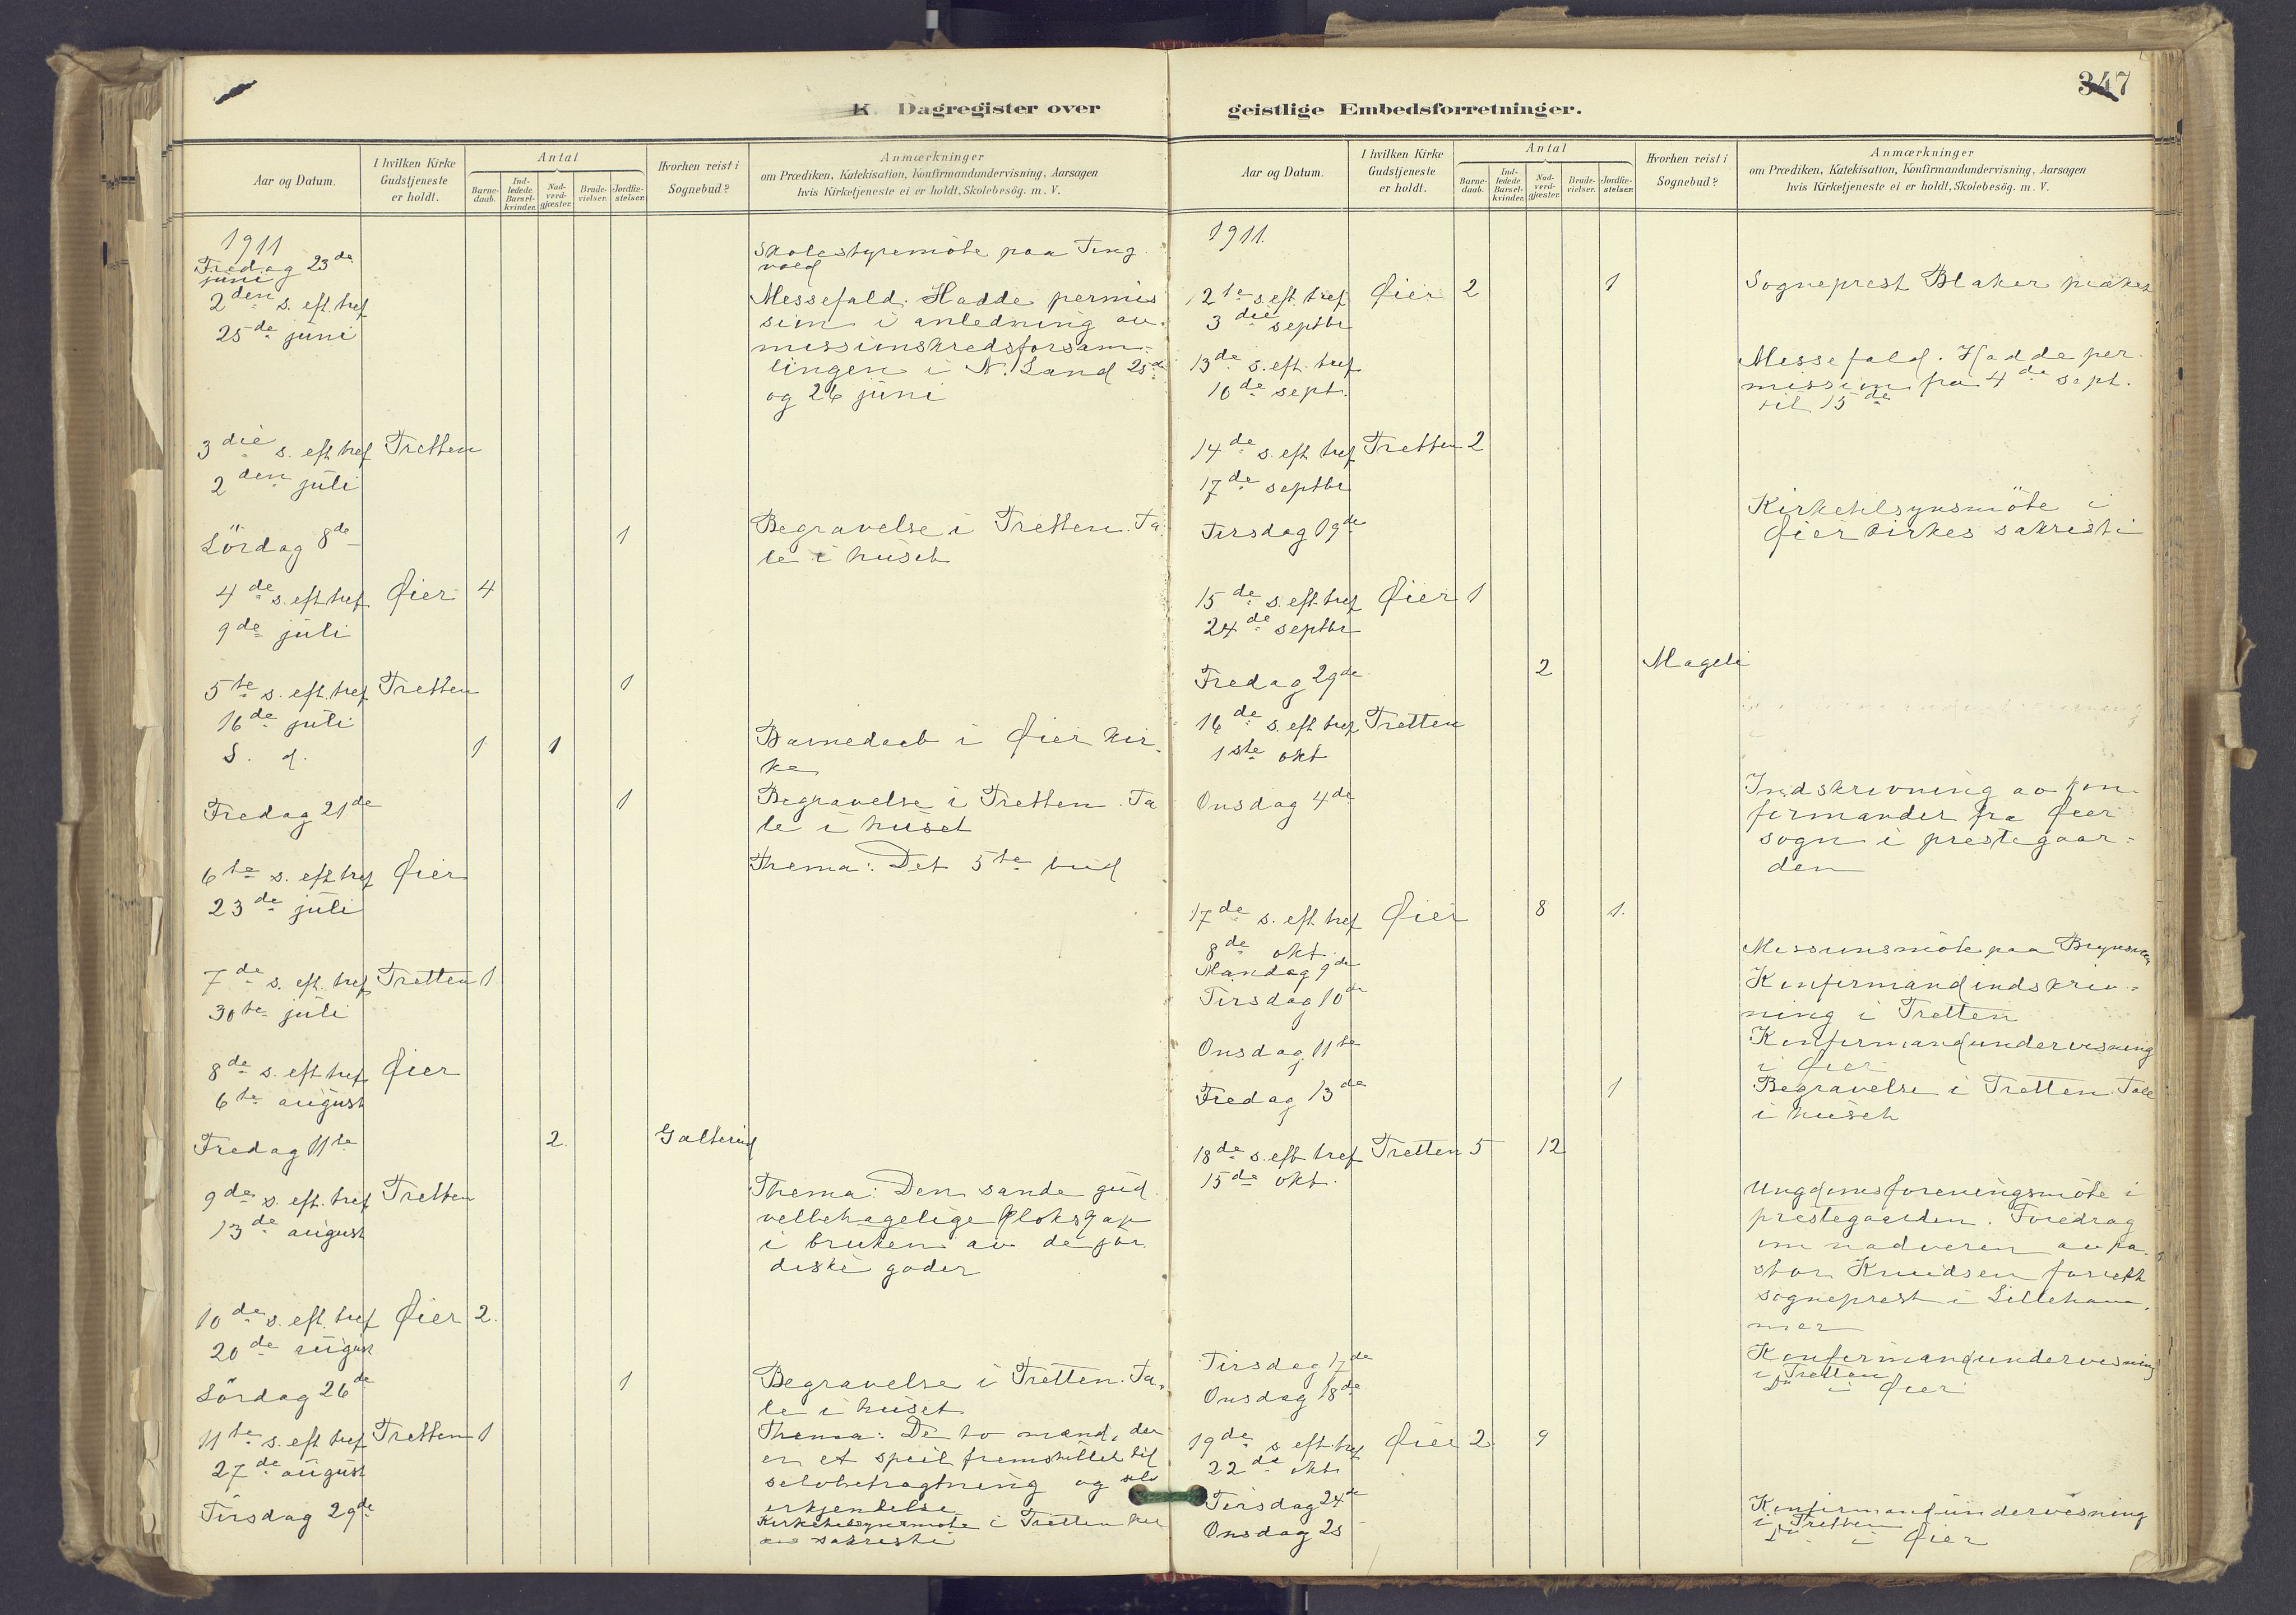 K. Dagregister over
Aar og Datum.
I hvilken Kirke
Gudstjeneste
er holdt.
Antal
Barne-
daab.
Ind-
ledede
Barsel-
kvinder.
Nad-
verd-
gjæster.
Brude-
vielser.
Jordfæ-
stelser.
Hvorhen reist i
Sognebud?
Anmærkninger
om Prædiken, Katekisation, Konfirmandundervisning, Aarsagen
hvis Kirketjeneste ei er holdt, Skolebesög. m. V.
1911
Fredag 23de
juni
Skolestyremöte paa Ting
vold
2den s. eft. tref
25de juni
Messefald. Hadde permis
sion i anledning av
missionskredsforsam-
lingen i N. Land 25de
og 26 juni
3die s. eft tref Tretten
2den juli
Lördag 8de 1 Begravelse i Tretten. Ta
le i huset
4de s. eft tref Øier 4
9de juli
5te s. eft. tref Tretten 1
16de juli
S. d. 1 1 Barnedaab i Øier kir-
ke
Fredag 21de 1 Begravelse i Tretten. Ta
le i huset
6te s. eft tref Øier Thema: Det 5te bud
23de juli
7de s. eft. tref Tretten 1
30te juli
8de s. eft tref Øier
6te august
Fredag 11te 2. Galterud
9de s. eft. tref Tretten Thema: Den sande gud
13de august
velbehagelige klokskap
i bruken av de jor
diske goder
10de s. eft. tref Øier 2.
20de august
Lördag 26de 1 Begravelse i Tretten. Ta-
le i huset
11te s. eft tref Tretten 1 Thema: De to mænd, der
27de august
er et speil fremstillet til
selvbetragtning og selv
erkjendelse
Tirsdag 29de Kirketilsynsmöte i Tretten kir
kes sakristi
347
geistlige Embedsforretninger.
Aar og Datum.
I hvilken Kirke
Gudstjeneste
er holdt.
Antal
Barne-
daab.
Ind-
ledede
Barsel-
kvinder.
Nad-
verd-
gjæster.
Brude-
vielser.
Jordfæ-
stelser.
Hvorhen reist i
Sognebud?
Anmærkninger
om Prædiken, Katekisation, Konfirmandundervisning, Aarsagen
hvis Kirketjeneste ei er holdt, Skolebesög. m. V.
1911.
12te s. eft. tref Øier 2 1 Sogneprest Blaker
3die septbr
13de s. eft. tref
10de sept.
Messefald. Hadde per-
mission fra 4de sept.
til 15de
14de s. eft tref Tretten 2
17de septbr
Tirsdag 19de Kirketilsynsmöte i
Øier kirkes sakristi
15de s. eft. tref Øier 1
24de septbr
Fredag 29de 2 Mageli
16de s. eft tref Tretten
1ste okt
Onsdag 4de Indskrivning av kon-
firmander fra Øier
sogn i prestegaar-
den
17de s. eft. tref Øier 8 1.
8de okt.
Mandag 9de Missionsmöte paa
Tirsdag 10de Konfirmandindskriv-
ning i Tretten
Onsdag 11te Konfirmandundervisning
i Øier
Fredag 13de 1 Begravelse i Tretten. Tale
i huset
18de s. eft tref Tretten 5 12
15de okt.
Ungdomsforeningsmöte i
prestegaarden. Foredrag
om nadveren av pa-
stor Knudsen forrett
sogneprest i Lilleham-
mer
Tirsdag 17de Konfirmandundervisning
i Tretten
Onsdag 18de Do i Øier
19de s eft. tref Øier 2. 9
22de okt
Tirsdag 24de Konfirmandundervisning
i Tretten
Onsdag 25 Do i Øier